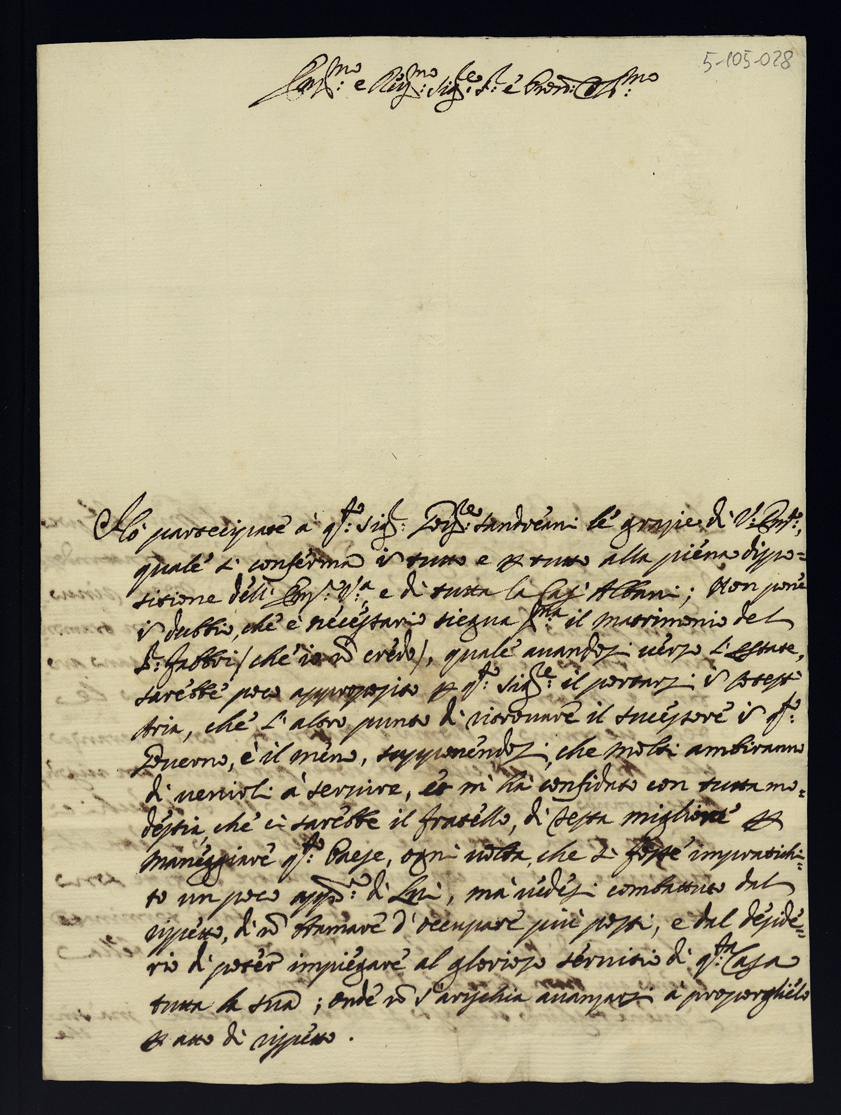 5-105-028
Em.mo e Rev.mo Sig.re S.r e Pron: Col.mo
Hò partecipate à q.to Sig.r Sandreani le grazie di V. Em.a,
quale si conferma in tutto e per tutto alla piena dispo=
sitione dell' Em.a V.a, e di tutta la Casa Albani; Non pone
in dubbio, che è necessario siegua p.ma il matrimonio del
S.r Fabbri (che io nõ credo), quale avandosi verso l'estate,
sarebbe poco approposito per q.to Sig.re il portarsi in cotest'
Aria, che l'altro punto di ritrovare il successore in q.to
Governo, è il meno, supponendosi, che molti ambiranno
di venirli à servire, et m'hà confidato con tutta mo=
destia, che ci sarebbe il fratello, di testa migliore per
maneggiare q.to Paese, ogni volta, che si fosse impratichi=
to un poco app.o di Lui, mà vedesi combattuto dal
rispetto, di nõ bramare d'occupare più posti, e dal deside=
rio di poter impiegare al glorioso servitio di q.sta Casa
tutta la sua; onde nõ s'arischia avanzarsi à proporglielo
per atto di rispetto.